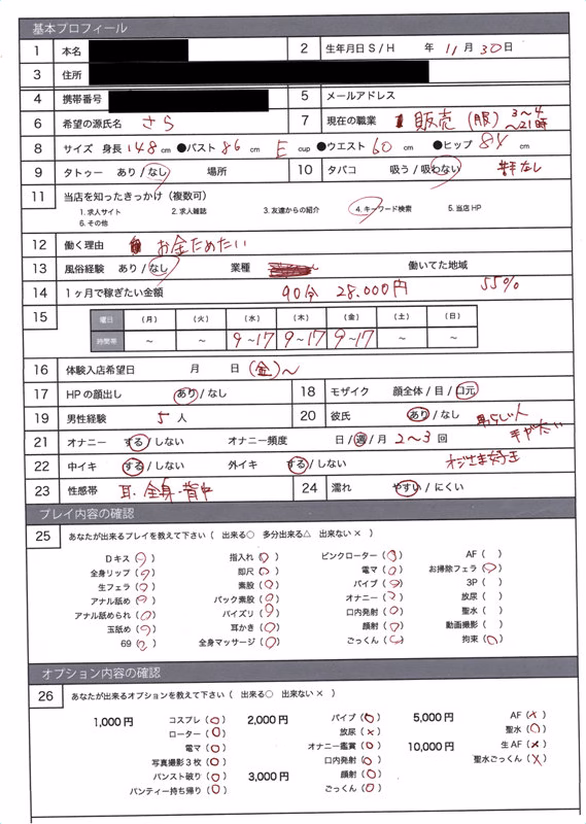 基本プロフィール
1 本名 2 生年月日 S / H 年 11 月 30 日
3 住所
4 携帯番号 5 メールアドレス
6 希望の源氏名 さら 7 現在の職業 販売 (服) 3〜4 〜21時
8 サイズ 身長 148 cm ●バスト 86 cm E cup ●ウエスト 60 cm ●ヒップ 84 cm
9 タトゥー あり / なし 場所 10 タバコ 吸う / 吸わない
11 当店を知ったきっかけ（複数可）
1. 求人サイト 2. 求人雑誌 3. 友達からの紹介 4. キーワード検索 5. 当店 HP
6. その他
12 働く理由 お金ためたい
13 風俗経験 あり / なし 業種 働いてた地域
14 1ヶ月で稼ぎたい金額 90分 28.000円 55%
15 曜日 （月） （火） （水） （木） （金） （土） （日）
時間帯 〜 〜 9〜17 9〜17 9〜17 〜 〜
16 体験入店希望日 月 日 (金)〜
17 HPの顔出し あり / なし 18 モザイク 顔全体 / 目 / 口元
19 男性経験 5 人 20 彼氏 あり / なし
21 オナニー する / しない オナニー頻度 日 / 週 / 月 2〜3 回
22 中イキ する / しない 外イキ する / しない オジさま好き
23 性感帯 耳.全身.背中 24 濡れ やすい / にくい
プレイ内容の確認
25 あなたが出来るプレイを教えて下さい（ 出来る○ 多分出来る△ 出来ない× ）
Dキス（○） 指入れ（○） ピンクローター（○） AF（ ）
全身リップ（○） 即尺（○） 電マ（○） お掃除フェラ（○）
生フェラ（○） 素股（○） バイブ（○） 3P（ ）
アナル舐め（○） バック素股（○） オナニー（○） 放尿（ ）
アナル舐められ（○） パイズリ（○） 口内発射（○） 聖水（ ）
玉舐め（○） 耳かき（○） 顔射（○） 動画撮影（ ）
69（○） 全身マッサージ（○） ごっくん（○） 拘束（○）
オプション内容の確認
26 あなたが出来るオプションを教えて下さい（ 出来る○ 出来ない× ）
1,000円 コスプレ（○） 2,000円 バイブ（○） 5,000円 AF（×）
ローター（○） 放尿（×） 聖水（○）
電マ（○） オナニー鑑賞（○） 10,000円 生AF（×）
写真撮影3枚（○） 口内発射（○） 聖水ごっくん（×）
パンスト破り（○） 3,000円 顔射（○）
パンティー持ち帰り（○） ごっくん（○）